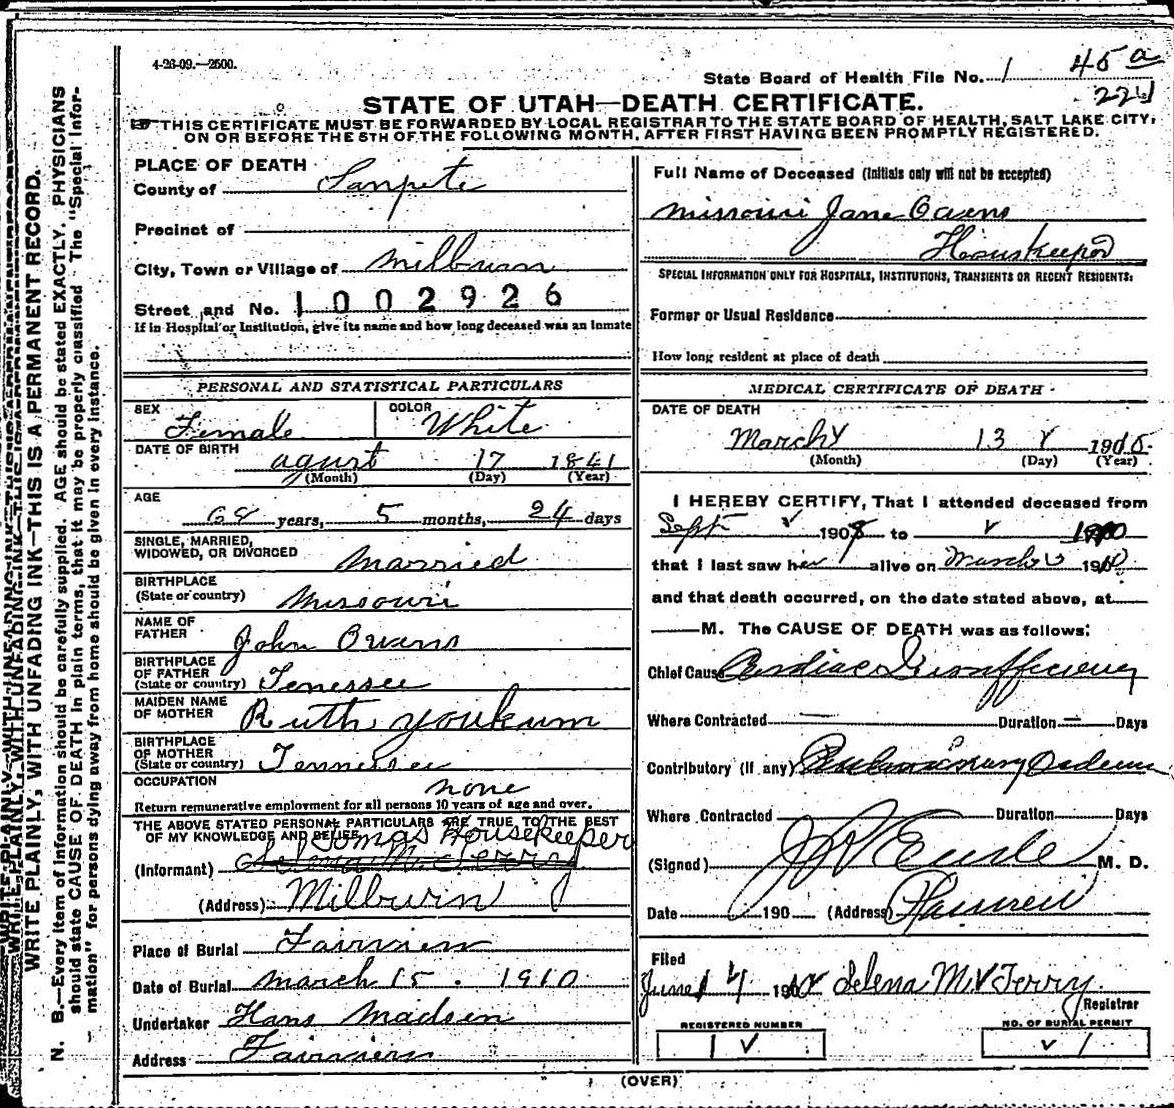 4-26-09.—2500.
State Board of Health File No. 1 45 a
221
STATE OF UTAH—DEATH CERTIFICATE.
THIS CERTIFICATE MUST BE FORWARDED BY LOCAL REGISTRAR TO THE STATE BOARD OF HEALTH, SALT LAKE CITY,
ON OR BEFORE THE 5TH OF THE FOLLOWING MONTH, AFTER FIRST HAVING BEEN PROMPTLY REGISTERED.
WRITE PLAINLY, WITH UNFADING INK—THIS IS A PERMANENT RECORD.
N. B.—Every item of information should be carefully supplied. AGE should be stated EXACTLY. PHYSICIANS
should state CAUSE OF DEATH in plain terms, that it may be properly classified. The "Special Infor-
mation" for persons dying away from home should be given in every instance.
PLACE OF DEATH
County of Sanpete
Precinct of
City, Town or Village of Milburn
Street and No. 1002926
If in Hospital or Institution, give its name and how long deceased was an inmate
PERSONAL AND STATISTICAL PARTICULARS
SEX Female COLOR White
DATE OF BIRTH
agust 17 1841
(Month) (Day) (Year)
AGE
68 years, 5 months, 24 days
SINGLE, MARRIED,
WIDOWED, OR DIVORCED Married
BIRTHPLACE
(State or country) Missouri
NAME OF
FATHER John Owens
BIRTHPLACE
OF FATHER
(State or country) Tenessee
MAIDEN NAME
OF MOTHER Ruth youkum
BIRTHPLACE
OF MOTHER
(State or country) Tennessee
OCCUPATION none
Return remunerative employment for all persons 10 years of age and over.
THE ABOVE STATED PERSONAL PARTICULARS ARE TRUE TO THE BEST
OF MY KNOWLEDGE AND BELIEF
Housekeeper
(Informant) Selena McV Terry
(Address) Milburn
Place of Burial Fairview
Date of Burial march 15. 1910
Undertaker Hans Madsen
Address Fairview
Full Name of Deceased (Initials only will not be accepted)
Missouri Jane Owens
Houskeeper
SPECIAL INFORMATION ONLY FOR HOSPITALS, INSTITUTIONS, TRANSIENTS OR RECENT RESIDENTS:
Former or Usual Residence
How long resident at place of death
MEDICAL CERTIFICATE OF DEATH
DATE OF DEATH
March 13 1910
(Month) (Day) (Year)
I HEREBY CERTIFY, That I attended deceased from
Sept 1908 to 1910
that I last saw her alive on March 1910
and that death occurred, on the date stated above, at
M. The CAUSE OF DEATH was as follows:
Chief Cause Cardiac Insufficiency
Where Contracted — Duration — Days
Contributory (if any) Pulmonary Oedema
Where Contracted Duration Days
(Signed) M. D.
Date 190 (Address) Fairview
Filed
June 14 1910 Selena McV Terry
Registrar
REGISTERED NUMBER
1 v
NO. OF BURIAL PERMIT
v 1
(OVER)